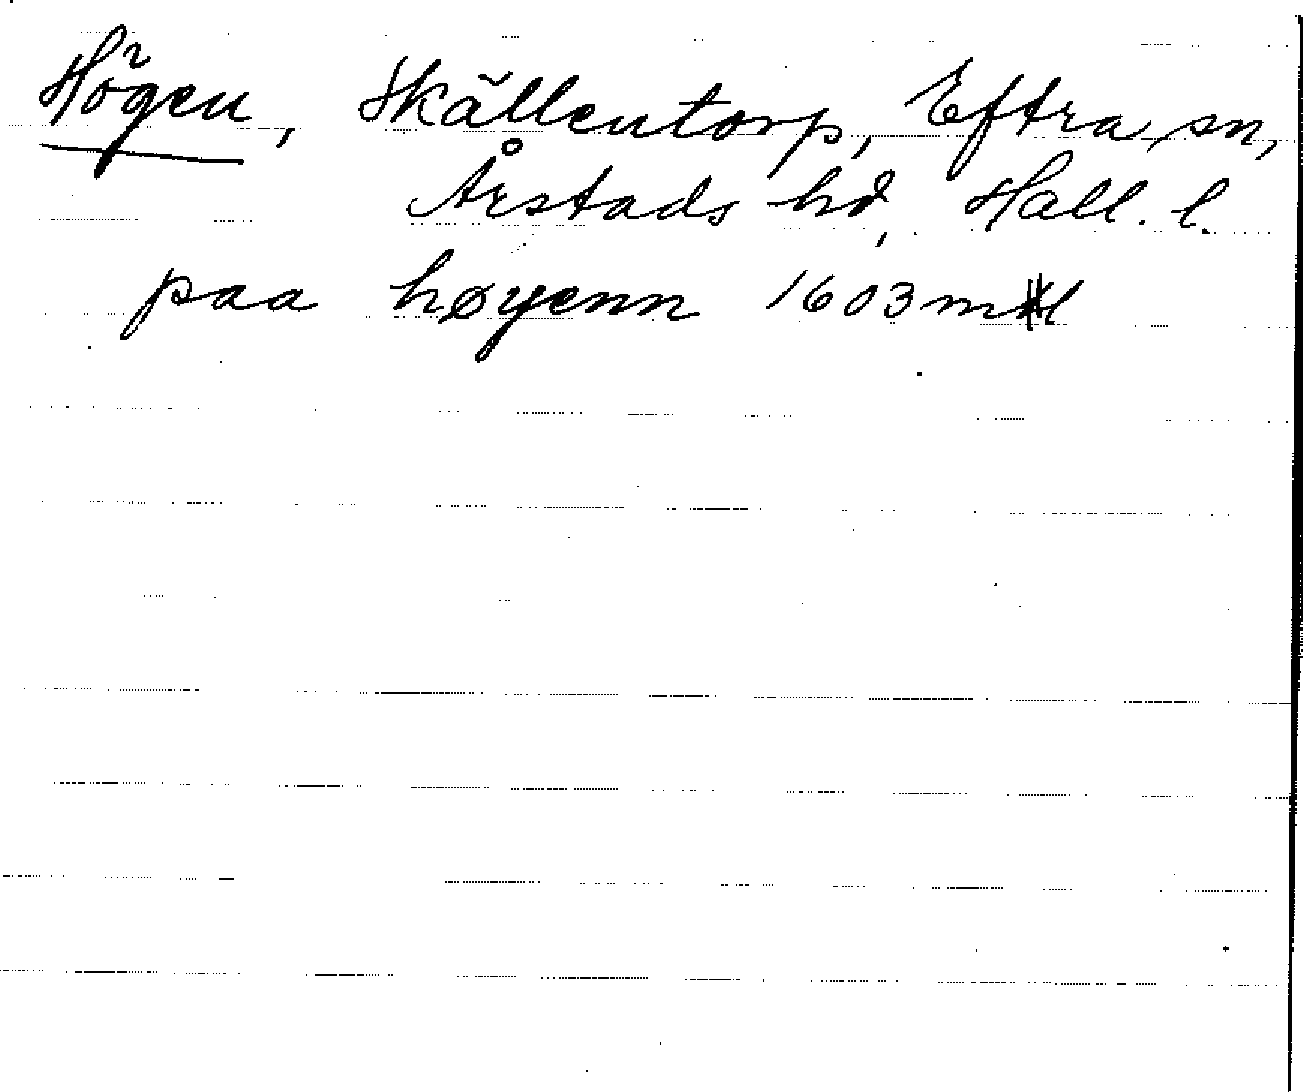 Högen, Skällentorp, Eftra sn,
Årstads hd, Hall. l.
paa høyenn 1603 ml